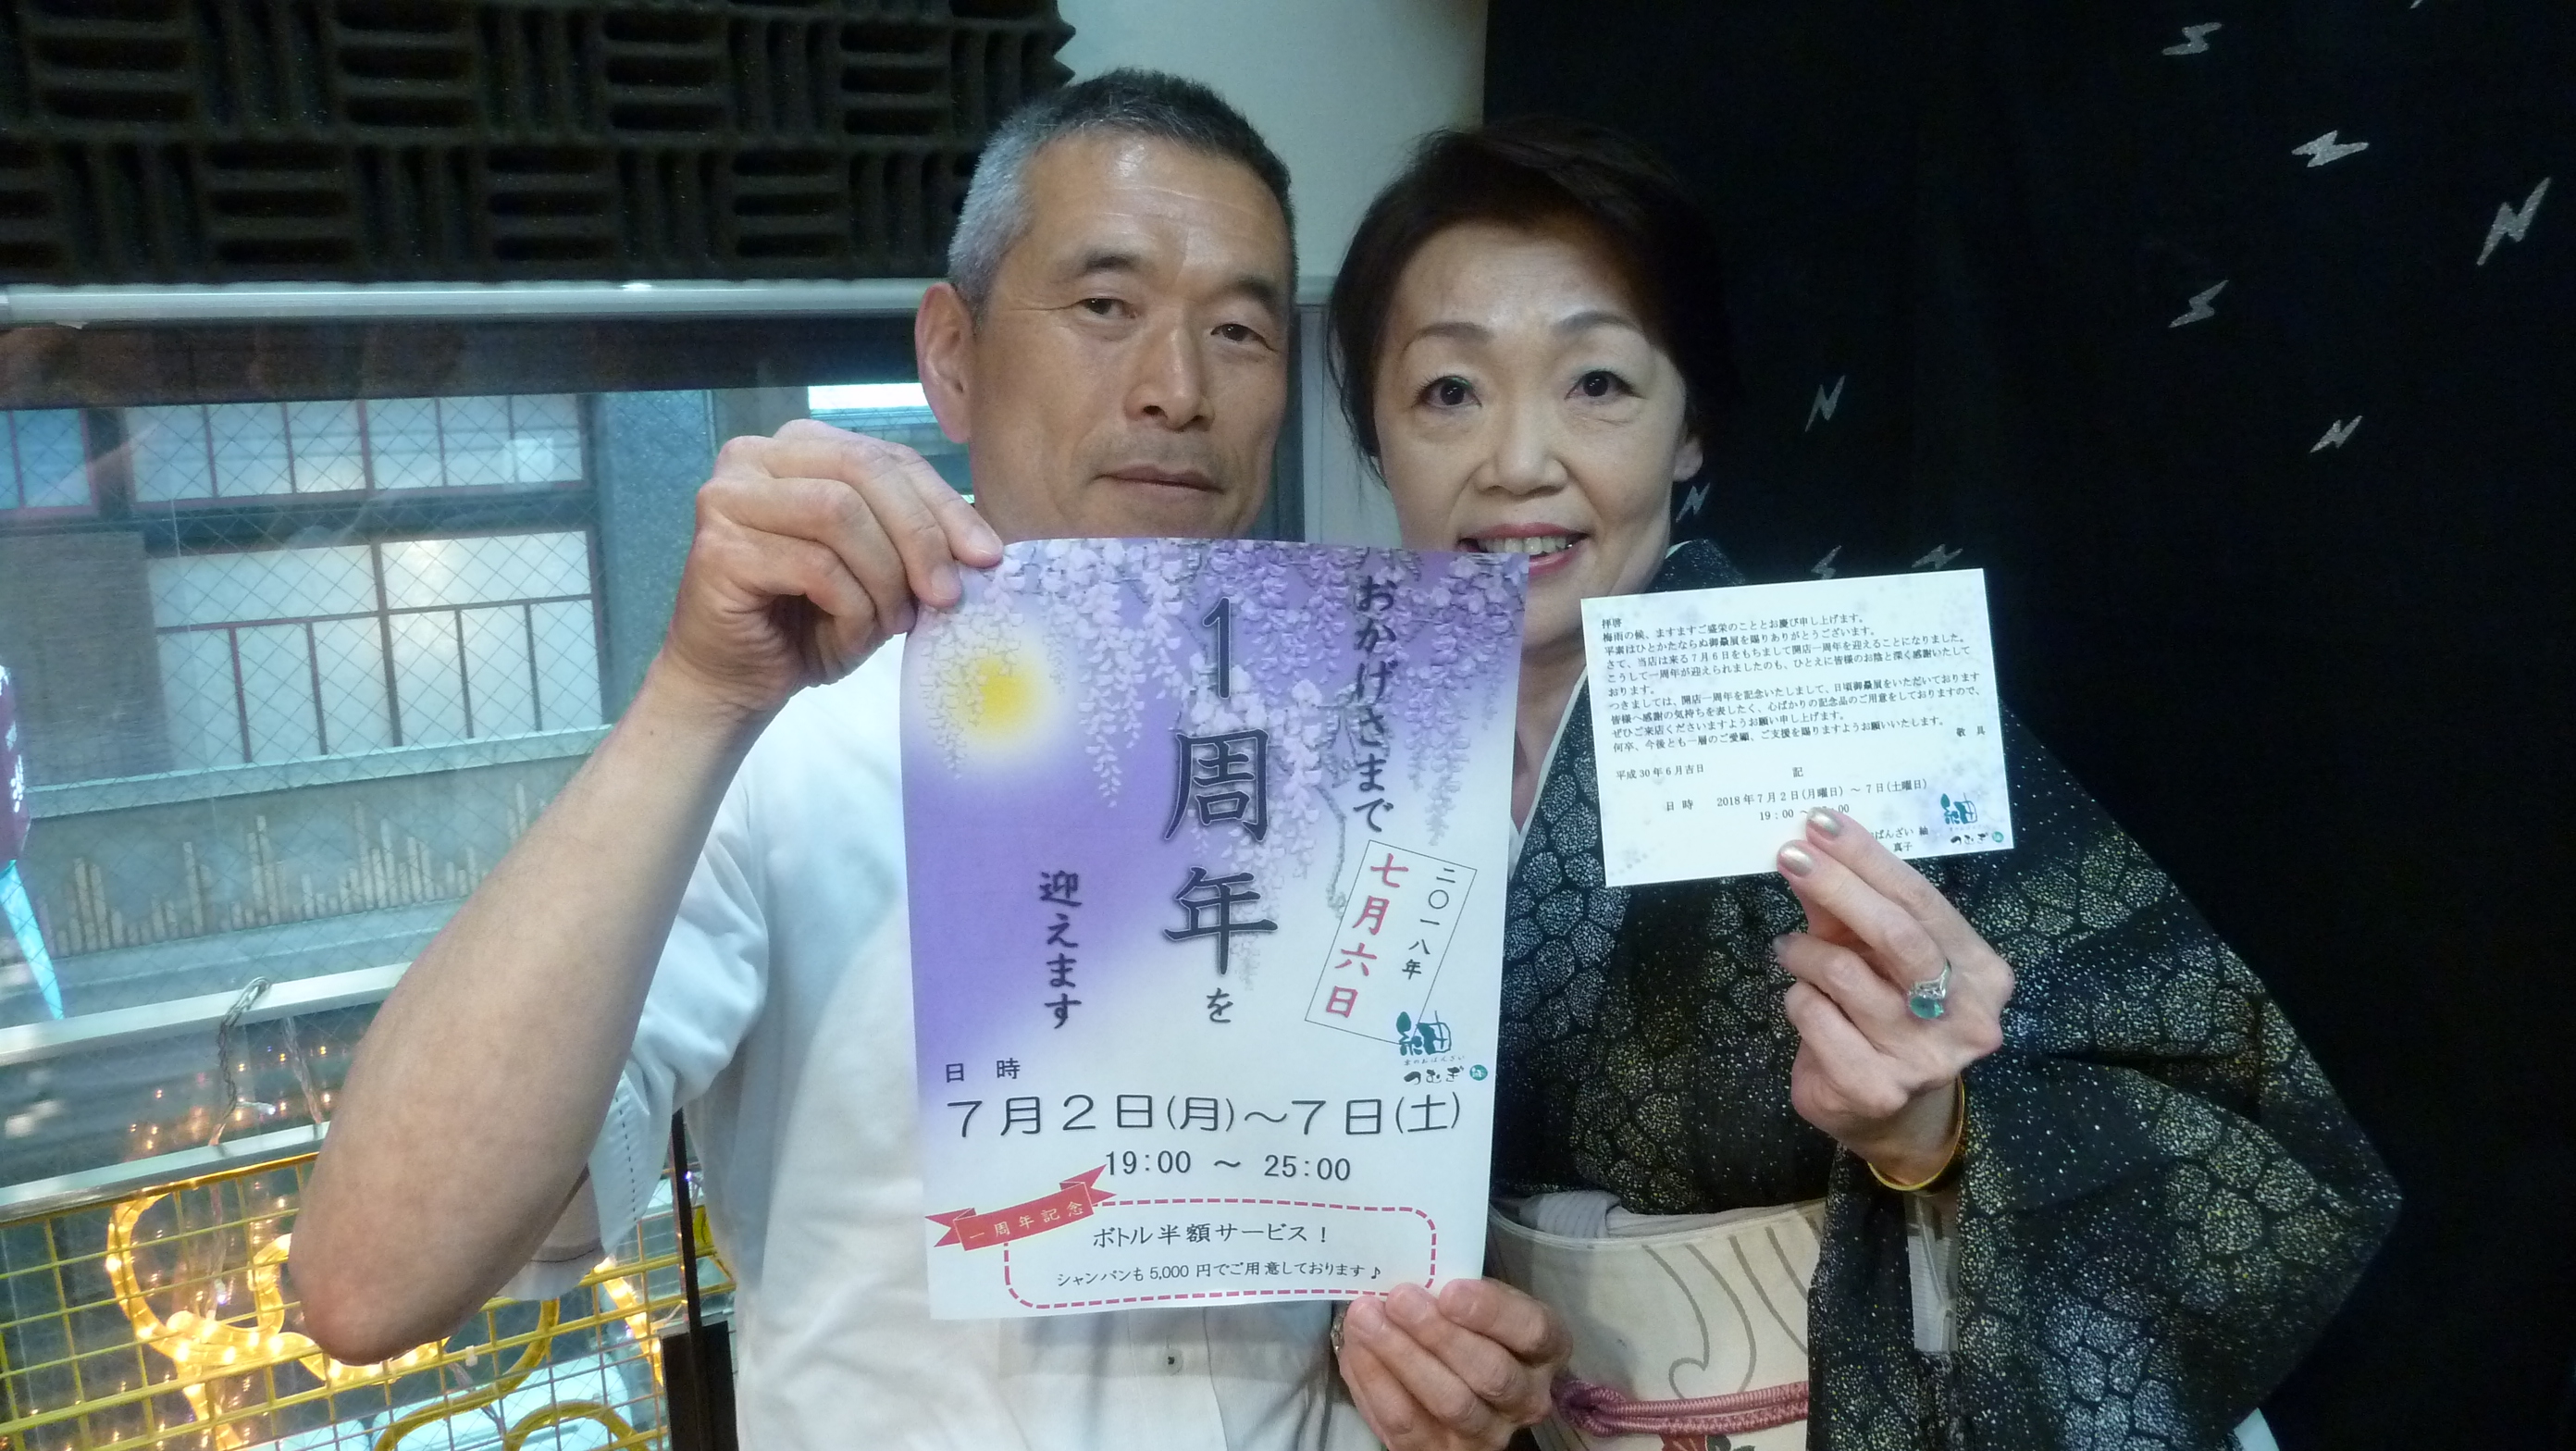 おかげさまで
1周年を
迎えます
二〇一八年
七月六日
紬
京のおばんざい
つむぎ
日 時
7月2日(月)~7日(土)
19:00 ~ 25:00
一周年記念
ボトル半額サービス!
シャンパンも5,000円でご用意しております♪
拝啓
梅雨の候、ますますご盛栄のこととお慶び申し上げます。
平素はひとかたならぬ御贔屓を賜りありがとうございます。
さて、当店は来る7月6日をもちまして開店一周年を迎えることになりました。
こうして一周年が迎えられましたのも、ひとえに皆様のお陰と深く感謝いたして
おります。
つきましては、開店一周年を記念いたしまして、日頃御贔屓をいただいております
皆様へ感謝の気持ちを表したく、心ばかりの記念品のご用意をしておりますので、
ぜひご来店くださいますようお願い申し上げます。
何卒、今後とも一層のご愛顧、ご支援を賜りますようお願いいたします。
敬 具
平成30年6月吉日
記
日 時 2018年7月2日(月曜日)~7日(土曜日)
19:00 ~ :00
ばんざい 紬
真子
紬
つむぎ